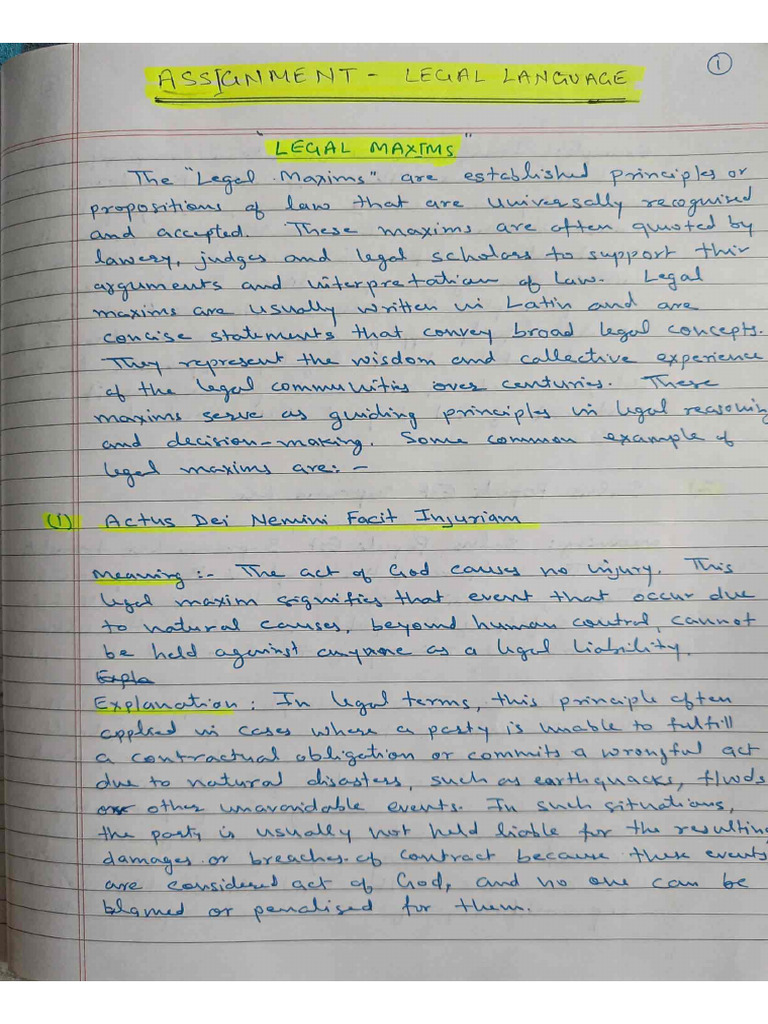 1
ASSIGNMENT - LEGAL LANGUAGE
"LEGAL MAXIMS"
The "Legal Maxims" are established principles or
propositions of law that are universally recognised
and accepted. These maxims are often quoted by
lawery, judges and legal scholars to support thir
arguments and interpretation of law. Legal
maxims are usually written in Latin and are
concise statements that convey broad legal concepts.
They represent the wisdom and collective experience
of the legal communities over centuries. These
maxims serve as guiding principles in legal reasoning
and decision-making. Some common example of
legal maxims are: -
(1) Actus Dei Nemini Facit Injuriam
Meaning :- The act of God causes no injury. This
legal maxim signifies that event that occur due
to natural causes, beyond human control, cannot
be held against anyone as a legal liability.
Expla
Explanation : In legal terms, this principle often
applied in cases where a party is unable to fulfill
a contractual obligation or commits a wrongful act
due to natural disasters, such as earthquacks, floods
or other unavoidable events. In such situations,
the party is usually not held liable for the resulting
damages or breaches of contract because these events
are considered act of God, and no one can be
blamed or penalised for them.